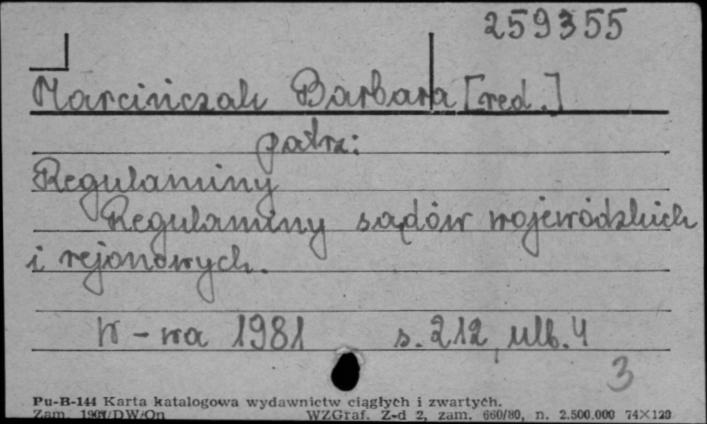 259355
Marcińczak Barbara [red.]
patrz:
Regulaminy
Regulaminy sądów wojewódzkich
i rejonowych.
W-wa 1981 s. 212, ulb. 4
3
Pu-B-144 Karta katalogowa wydawnictw ciągłych i zwartych.
Zam. DW/On WZGraf. Z-d 2, zam. 660/80, n. 2.500.000 74×120